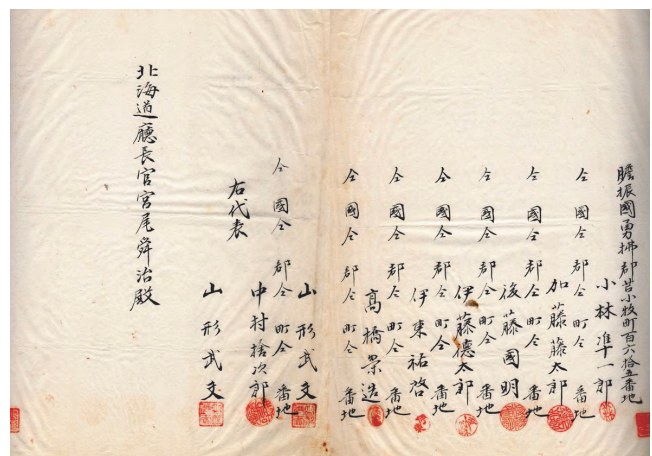 膽振國勇拂郡苫小牧町百六拾五番地
小林准一郎
仝國仝郡仝町仝番地
加藤藤太郎
仝國仝郡仝町仝番地
後藤國明
仝國仝郡仝町仝番地
伊藤德太郎
仝國仝郡仝町仝番地
伊東祐啓
仝國仝郡仝町仝番地
高橋景造
仝國仝郡仝町仝番地
山形武文
仝國仝郡仝町仝番地
中村捨次郎
右代表
山形武文
北海道廳長官宮尾舜治殿